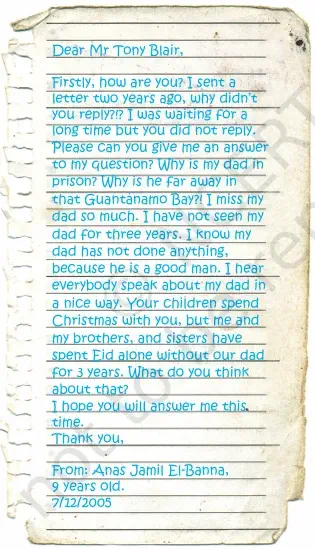 Dear Mr Tony Blair,
Firstly, how are you? I sent a
letter two years ago, why didn't
you reply?!? I was waiting for a
long time but you did not reply.
Please can you give me an answer
to my question? Why is my dad in
prison? Why is he far away in
that Guantanamo Bay?! I miss my
dad so much. I have not seen my
dad for three years. I know my
dad has not done anything,
because he is a good man. I hear
everybody speak about my dad in
a nice way. Your children spend
Christmas with you, but me and
my brothers, and sisters have
spent Eid alone without our dad
for 3 years. What do you think
about that?
I hope you will answer me this
time.
Thank you,
From: Anas Jamil El-Banna,
9 years old.
7/12/2005